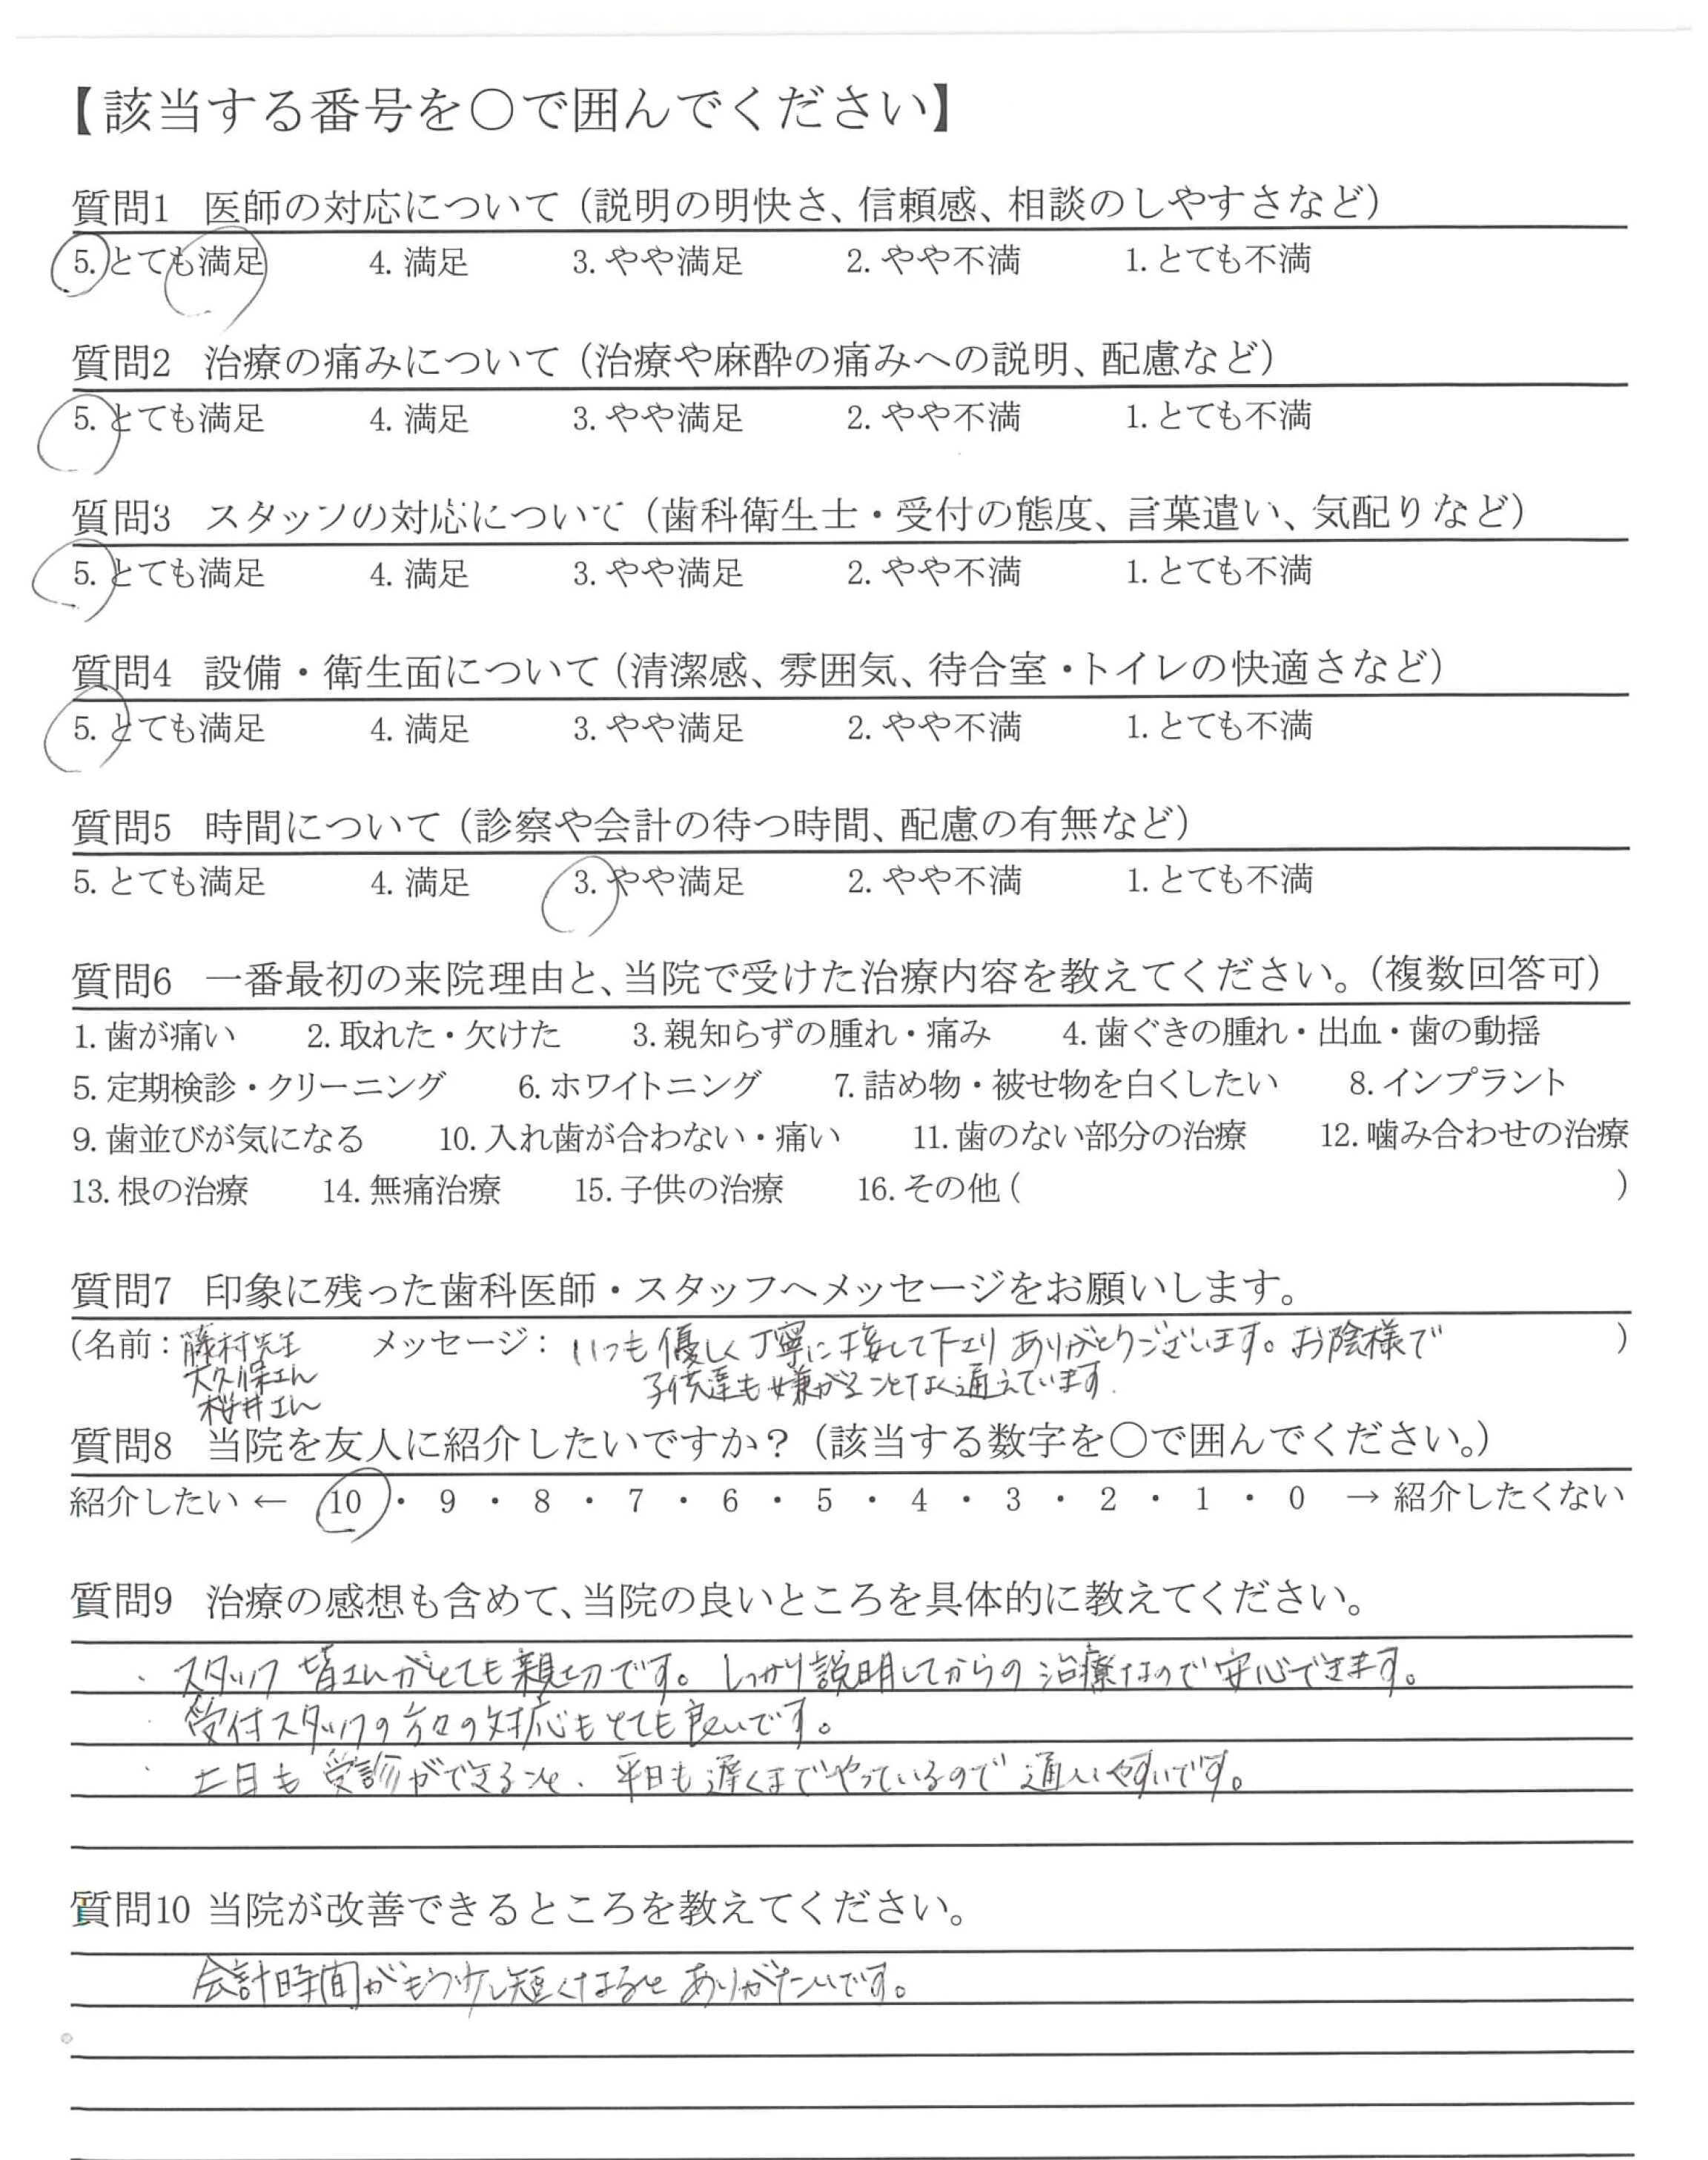 【該当する番号を○で囲んでください】
質問1 医師の対応について（説明の明快さ、信頼感、相談のしやすさなど）
5. とても満足 4. 満足 3. やや満足 2. やや不満 1. とても不満
質問2 治療の痛みについて（治療や麻酔の痛みへの説明、配慮など）
5. とても満足 4. 満足 3. やや満足 2. やや不満 1. とても不満
質問3 スタッフの対応について（歯科衛生士・受付の態度、言葉遣い、気配りなど）
5. とても満足 4. 満足 3. やや満足 2. やや不満 1. とても不満
質問4 設備・衛生面について（清潔感、雰囲気、待合室・トイレの快適さなど）
5. とても満足 4. 満足 3. やや満足 2. やや不満 1. とても不満
質問5 時間について（診察や会計の待つ時間、配慮の有無など）
5. とても満足 4. 満足 3. やや満足 2. やや不満 1. とても不満
質問6 一番最初の来院理由と、当院で受けた治療内容を教えてください。（複数回答可）
1. 歯が痛い 2. 取れた・欠けた 3. 親知らずの腫れ・痛み 4. 歯ぐきの腫れ・出血・歯の動揺
5. 定期検診・クリーニング 6. ホワイトニング 7. 詰め物・被せ物を白くしたい 8. インプラント
9. 歯並びが気になる 10. 入れ歯が合わない・痛い 11. 歯のない部分の治療 12. 噛み合わせの治療
13. 根の治療 14. 無痛治療 15. 子供の治療 16. その他（ ）
質問7 印象に残った歯科医師・スタッフへメッセージをお願いします。
（名前：藤村先生 メッセージ：いつも優しく丁寧に接して下さり ありがとうございます。お陰様で ）
大久保さん 子供達も嫌がることなく通えています.
桜井さん
質問8 当院を友人に紹介したいですか？（該当する数字を○で囲んでください。）
紹介したい ← 10 ・ 9 ・ 8 ・ 7 ・ 6 ・ 5 ・ 4 ・ 3 ・ 2 ・ 1 ・ 0 → 紹介したくない
質問9 治療の感想も含めて、当院の良いところを具体的に教えてください。
・スタッフ皆さんがとても親切です。しっかり説明してからの治療なので安心できます。
・受付スタッフの方々の対応もとても良いです。
・土日も受診ができること、平日も遅くまでやっているので通いやすいです。
質問10 当院が改善できるところを教えてください。
会計時間がもう少し短くなるとありがたいです。